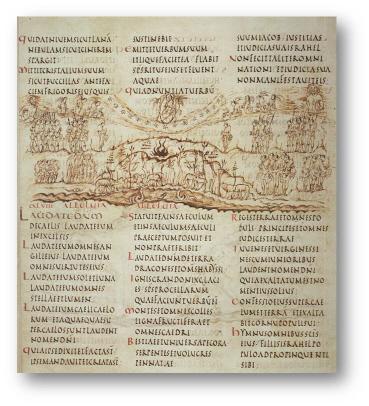 QUIDATNIUEMSICUTLANA
NEBULAMSICUTCINEREM
SPARGIT
MITTITCRISTALLUMSUUM
SICUTBUCCELLAS ANTEFA
CIEMFRIGORISEIUSQUIS
SUSTINEBIT
EMITTETUERBUMSUUM
ETLIQUEFACIETEA FLABIT
SPSEIUSETFLUENT
AQUAE
QUIADNUNTIATUERBU
SUUMIACOB IUSTITIAS
ETIUDICIASUAISRAHEL
NONFECITTALITEROMNI
NATIONI ETIUDICIASUA
NONMANIFESTAUITEIS
ALLELUIA
LAUDATEDNM
DECAELIS LAUDATEEUM
INEXCELSIS
LAUDATEEUMOMNESAN
GELIEIUSLAUDATEEUM
OMNESUIRTUTESEIUS
LAUDATEEUMSOLETLUNA
LAUDATEEUMOMNES
STELLAEETLUMEN
LAUDATEEUMCAELICAELO
RUM ETAQUAEQUAESU
PERCAELOSSUNTLAUDENT
NOMENDNI
QUIAIPSEDIXITETFACTAST
IPSEMANDAUITETCREATAST
STATUITEAINSAECULUM
ETINSAECULUMSAECULI
PRAECEPTUMPOSUIT ET
NONPRAETERIBIT
LAUDATEDNMDETERRA
DRACONESETOMSHABYSSI
IGNISGRANDONIXGLACI
ES SPSPROCELLARUM
QUAEFACIUNTUERBUEI
MONTESETOMNESCOLLES
LIGNAFRUCTIFERAET
OMNESCAEDRI
BESTIAEETUNIUERSAPECORA
SERPENTESETUOLUCRES
PENNATAE
REGESTERRAEETOMNESPO
PULI PRINCIPESETOMNES
IUDICESTERRAE
IUUENESETUIRGINESSE
NESCUMIUNIORIBUS
LAUDENTNOMENDNI
QUIAEXALTATUMESTNO
MENEIUSSOLIUS
CONFESSIOEIUSSUPERCAE
LUMETTERRA ETEXALTA
BITCORNUPOPULISUI
HYMNUSOMNIBUSSCIS
EIUS FILIISISRAHELPO
PULOADPROPINQUENTI
SIBI